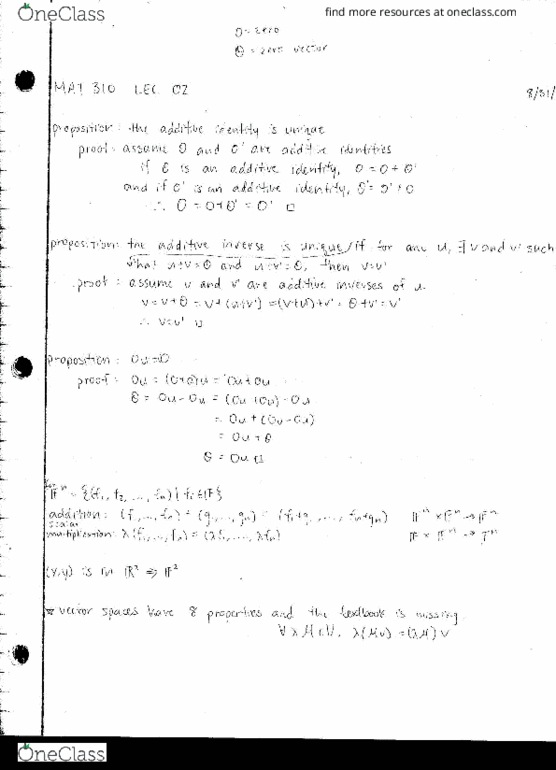 OneClass
find more resources at oneclass.com
0 = zero
θ = zero vector
MAT 310 LEC 02
8/31/
proposition: the additive identity is unique
proof: assume θ and θ' are additive identities
if θ is an additive identity, θ = θ + θ'
and if θ' is an additive identity, θ' = θ' + θ
∴ θ = θ + θ' = θ' □
proposition: the additive inverse is unique/if for any u, ∃ v and v' such
that u+v=θ and u+v'=θ, then v=v'
proof: assume v and v' are additive inverses of u.
v = v+θ = v+(u+v') = (v+u)+v' = θ+v' = v'
∴ v=v' □
proposition: 0u=θ
proof: 0u = (0+0)u = 0u+0u
θ = 0u-0u = (0u+0u)-0u
= 0u+(0u-0u)
= 0u+θ
θ = 0u □
𝔽ⁿ = {(f₁, f₂, ..., fₙ) | fᵢ∈𝔽}
addition: (f₁, ..., fₙ) + (g₁, ..., gₙ) = (f₁+g₁, ..., fₙ+gₙ) 𝔽ⁿ × 𝔽ⁿ → 𝔽ⁿ
scalar
multiplication: λ(f₁, ..., fₙ) = (λf₁, ..., λfₙ) 𝔽 × 𝔽ⁿ → 𝔽ⁿ
(x,y) is in ℝ² ⇒ 𝔽²
vector spaces have 8 properties and the textbook is missing
∀ λ, μ, v, λ(μv) = (λμ)v
OneClass